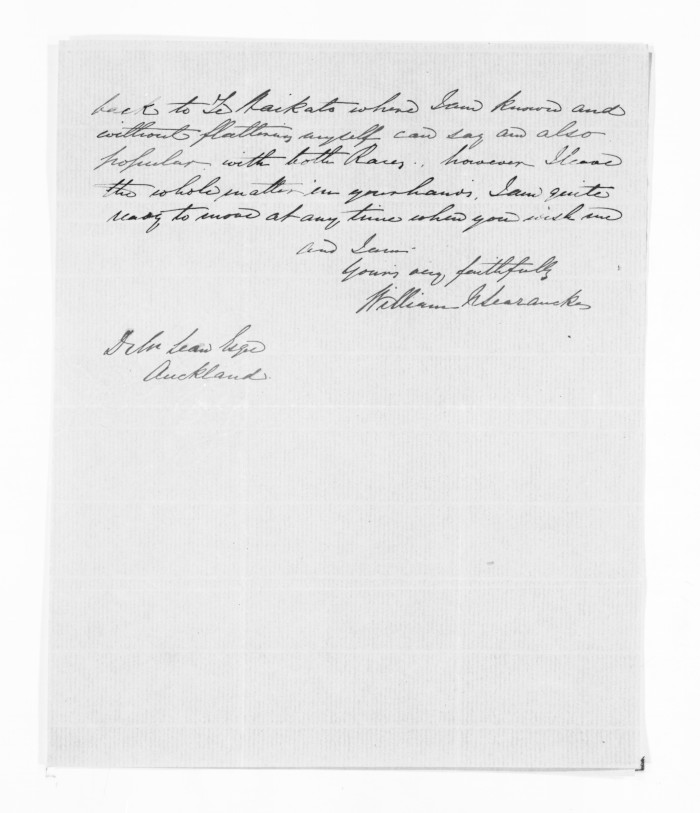 back to Te Waikato where I am known and
without flattering myself can say am also
popular with both Races., however I leave
the whole matter in your hands. I am quite
ready to move at any time when you wish me
and I am.
Yours very faithfully
William N Searancke
D. McLean Esqre
Auckland.